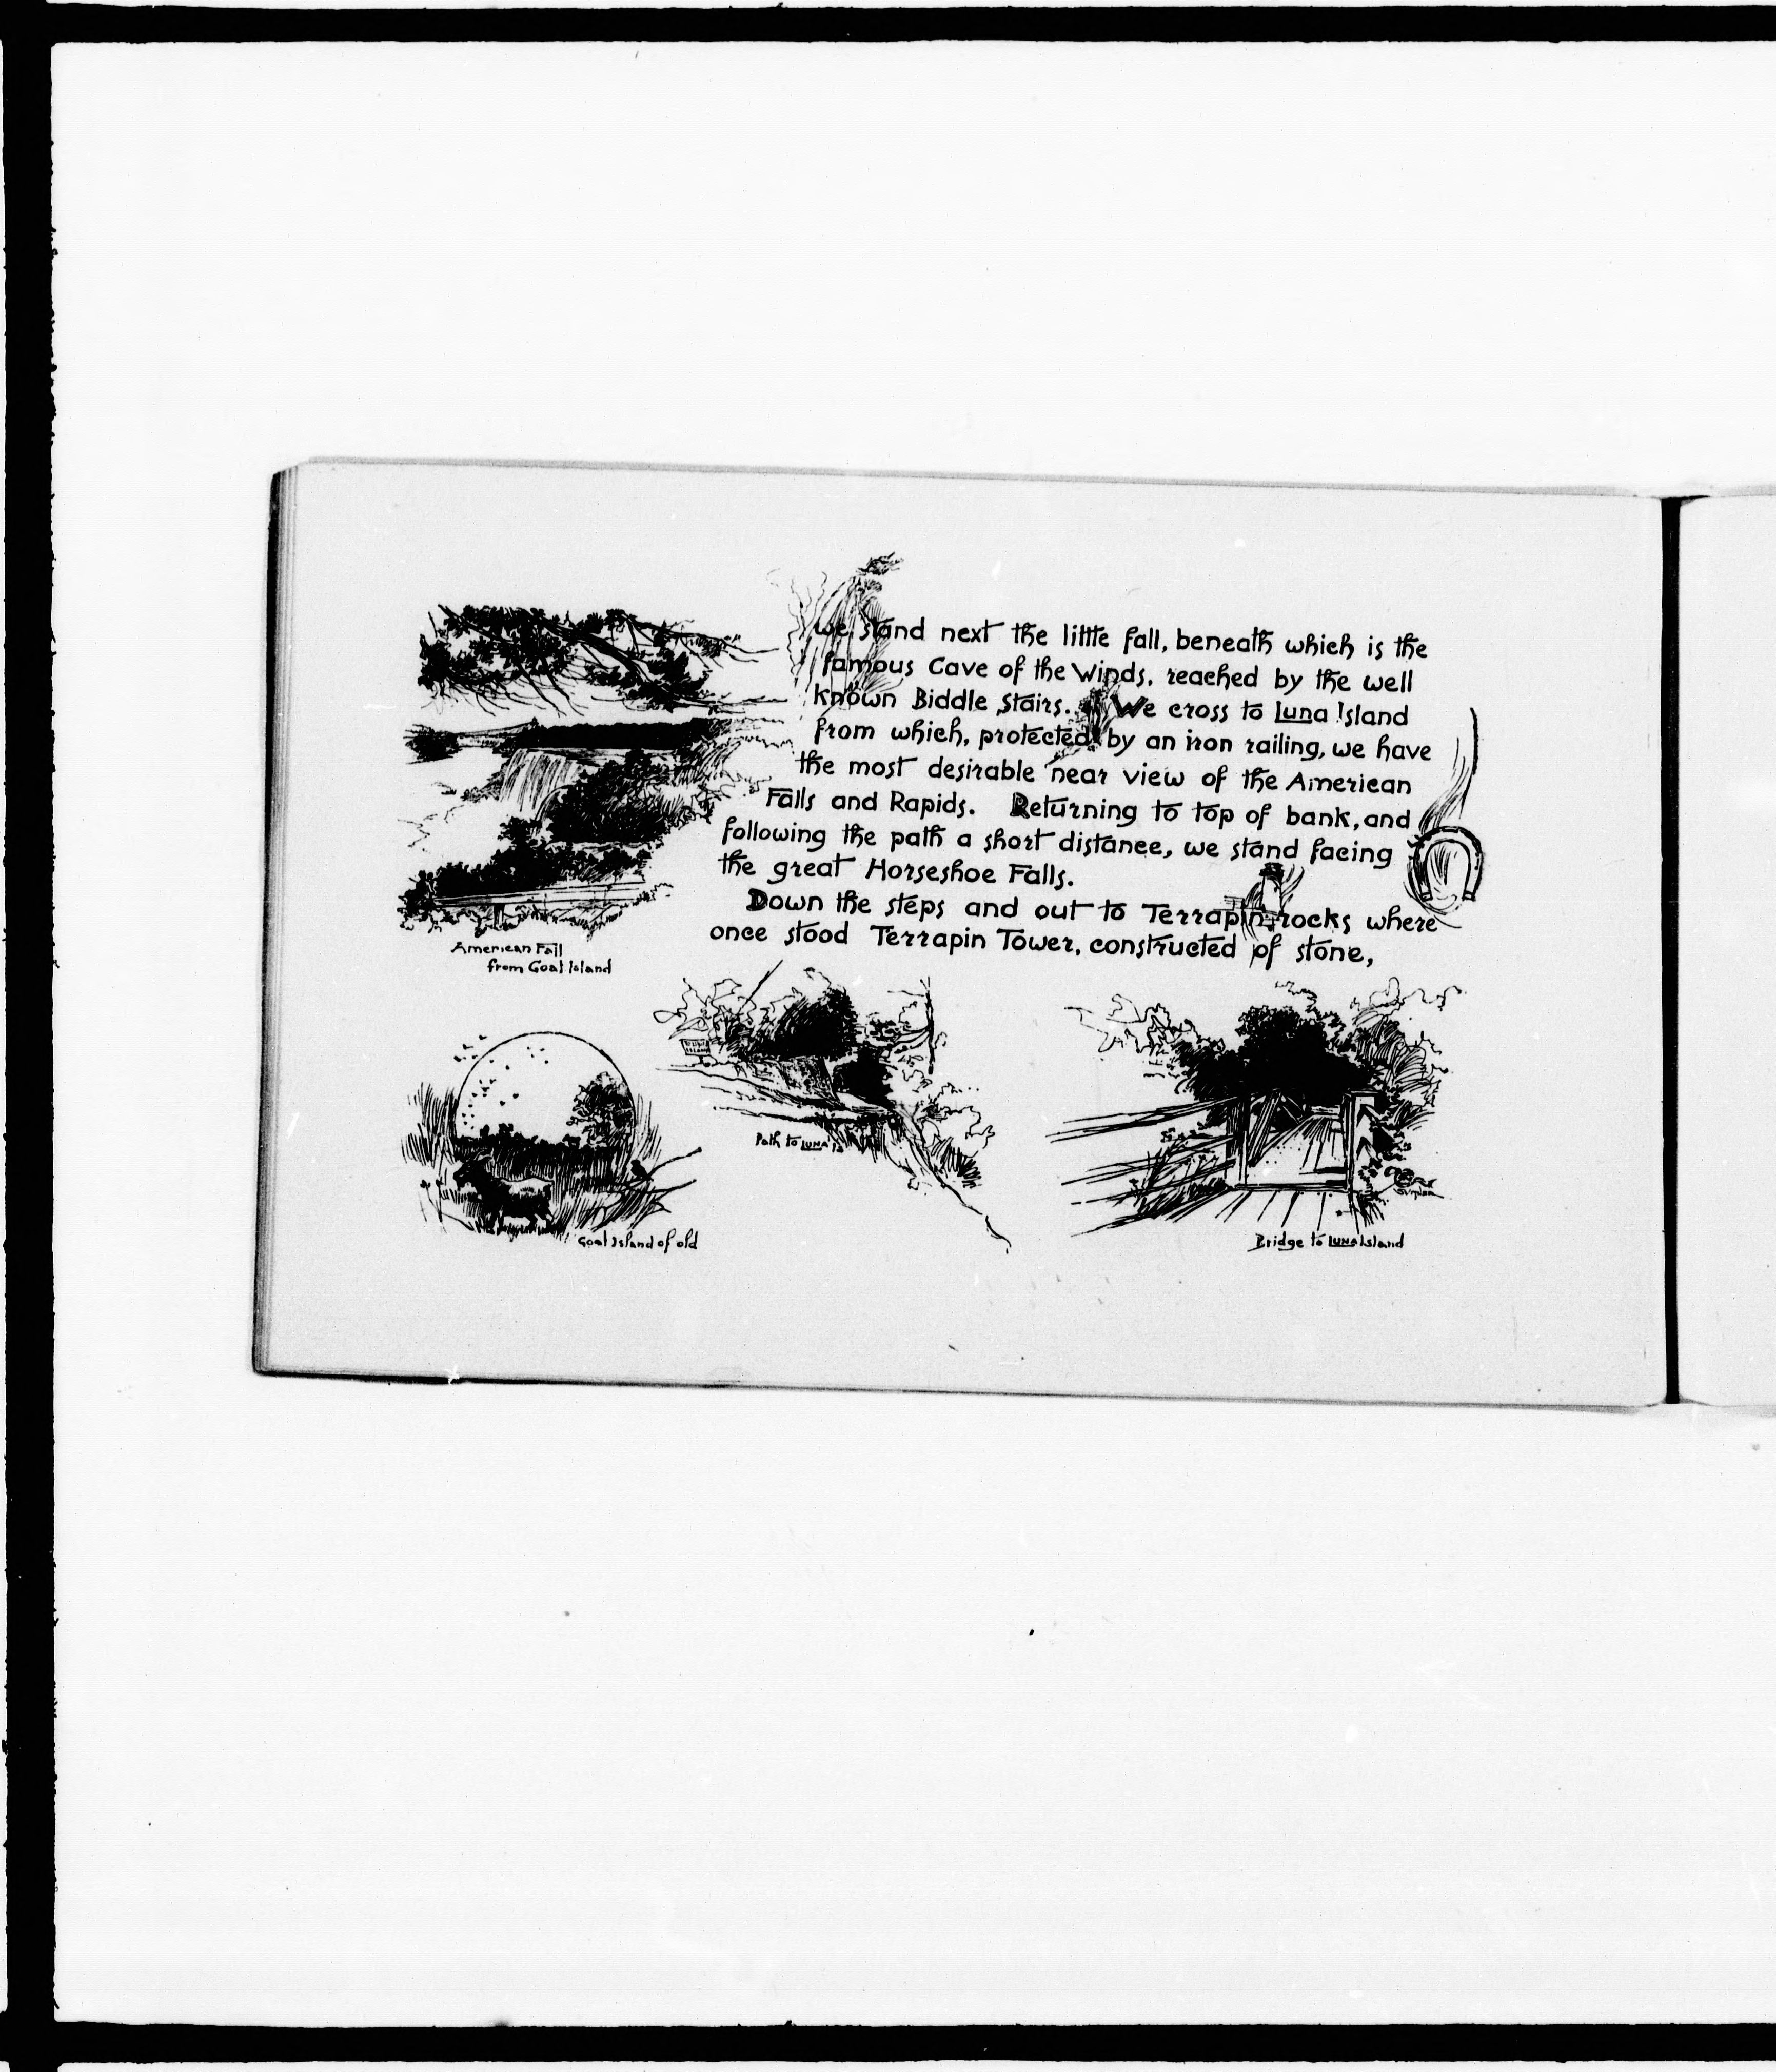 we stand next the little fall, beneath which is the
famous Cave of the Winds, reached by the well
known Biddle Stairs. We cross to Luna Island
from which, protected by an iron railing, we have
the most desirable near view of the American
Falls and Rapids. Returning to top of bank, and
following the path a short distance, we stand facing
the great Horseshoe Falls.
Down the steps and out to Terrapin rocks where
once stood Terrapin Tower, constructed of stone,
American Fall
from Goat Island
Path to LUNA Is
Goat Island of old
Bridge to LUNA Island